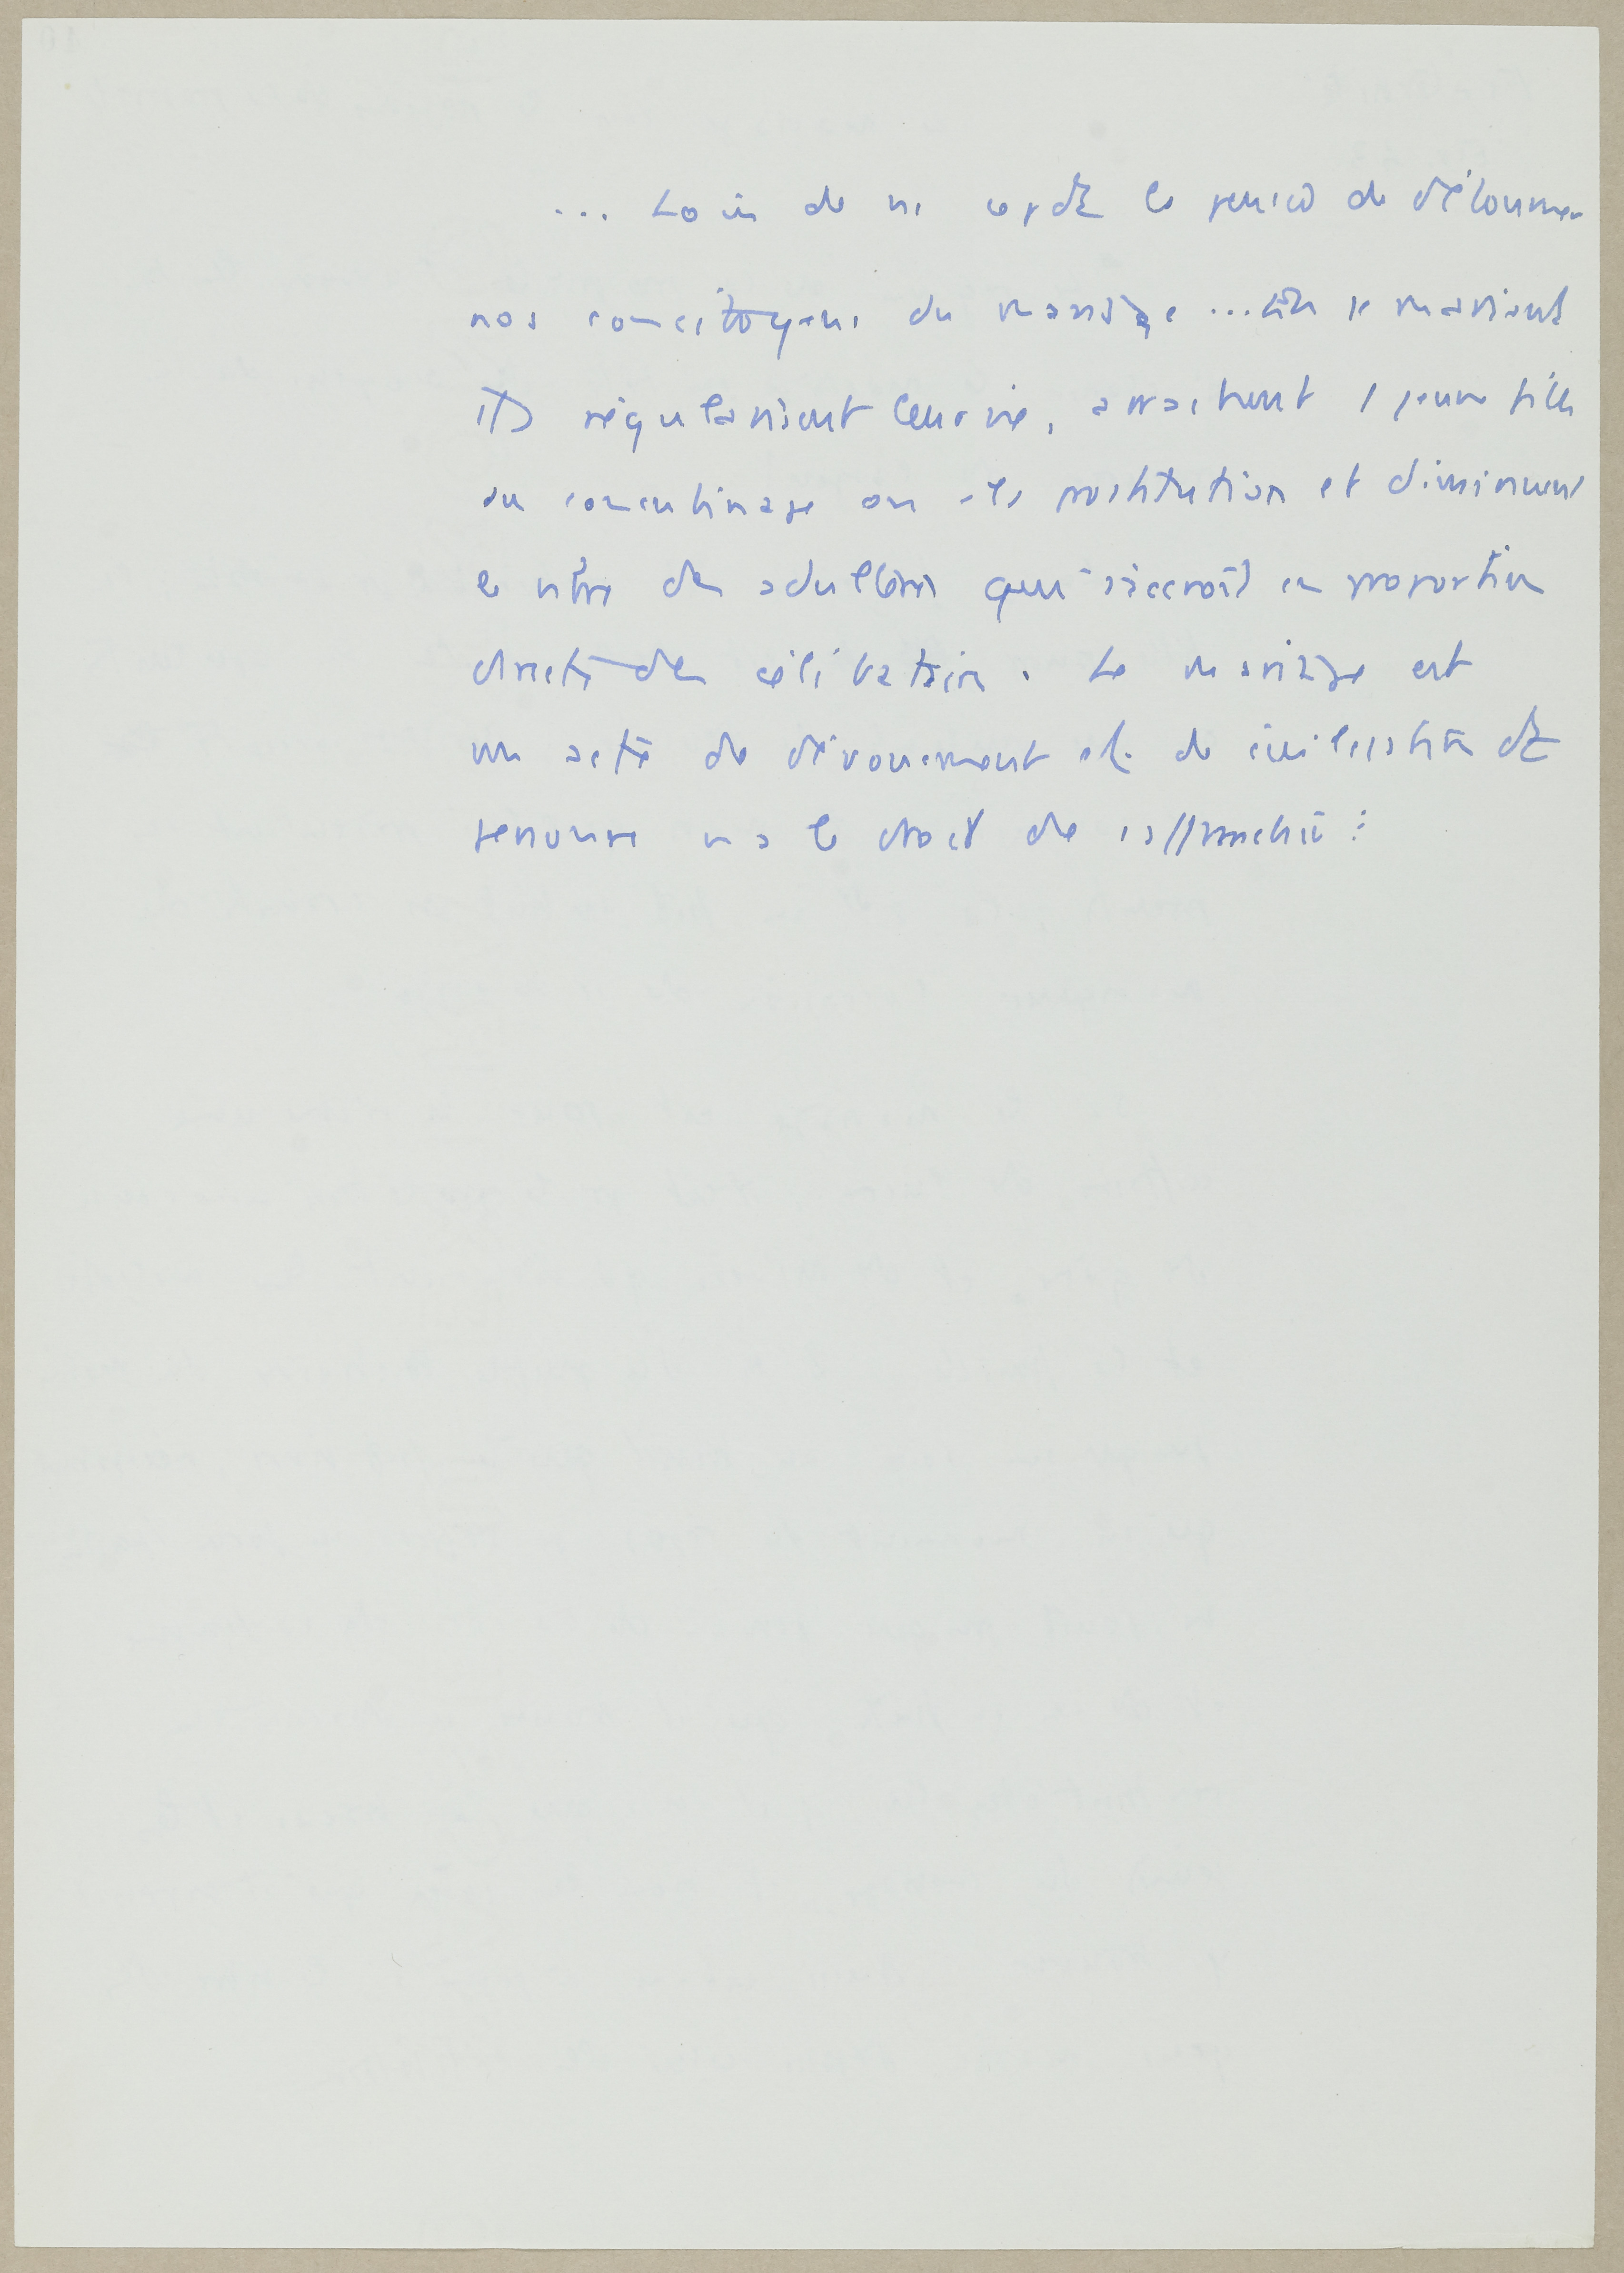 ... Loin de ns le service de détourner
nos concitoyens du mariage ... En se mariant
ils régularisent leur vie, arrachent 1 jeune fille
au concubinage ou à la prostitution et diminuent
le nbre des adultères qui s'accroît en proportion
directe des célibataires. Le mariage est
un acte de dévouement et de civilisation dt
personne n'a le droit de s'affranchir :